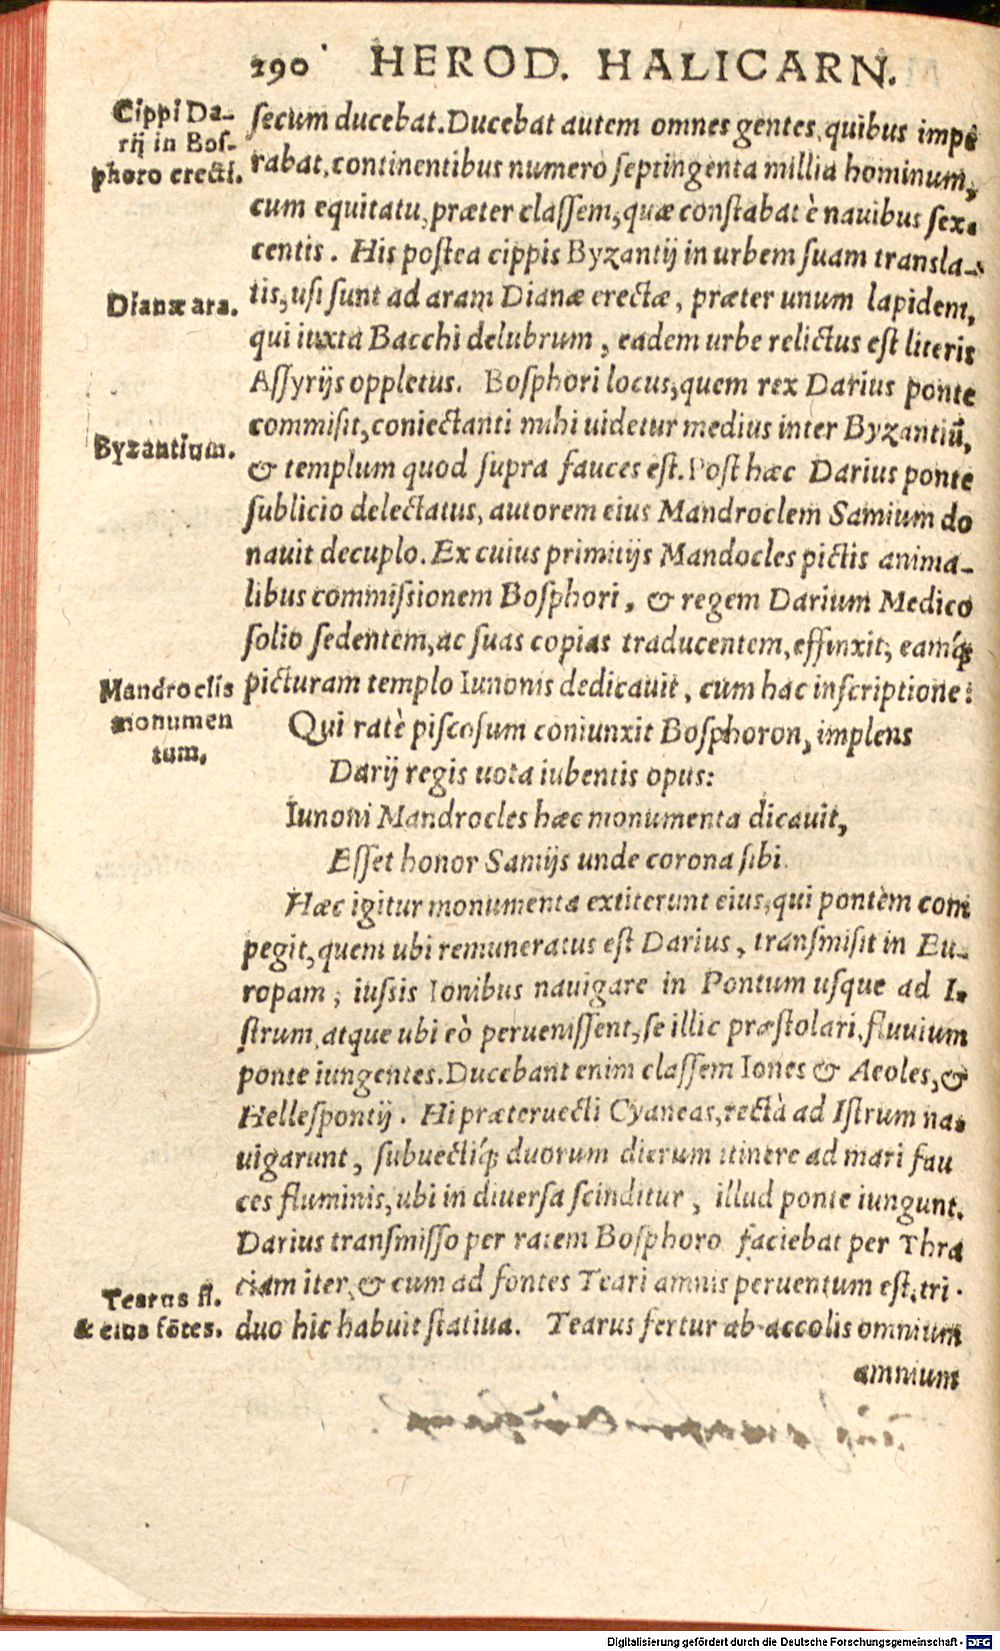 290 HEROD. HALICARN.
Cippi Da-
rij in Bos-
phoro erecti.
secum ducebat. Ducebat autem omnes gentes, quibus impe
rabat, continentibus numero septingenta millia hominum,
cum equitatu, præter classem, quæ constabat è nauibus sex-
centis. His postea cippis Byzantij in urbem suam transla-
Dianæ ara.
tis, usi sunt ad aram Dianæ erectæ, præter unum lapidem,
qui iuxta Bacchi delubrum, eadem urbe relictus est literis
Assyrijs oppletus. Bosphori locus, quem rex Darius ponte
commisit, coniectanti mihi uidetur medius inter Byzantiū,
Byzantium.
& templum quod supra fauces est. Post hæc Darius ponte
sublicio delectatus, autorem eius Mandroclem Samium do
nauit decuplo. Ex cuius primitijs Mandocles pictis anima-
libus commissionem Bosphori, & regem Darium Medico
solio sedentem, ac suas copias traducentem, effinxit, eamq́;
Mandroclis
monumen
tum.
picturam templo Iunonis dedicauit, cum hac inscriptione:
Qui ratè piscosum coniunxit Bosphoron, implens
Darij regis uota iubentis opus:
Iunoni Mandrocles hæc monumenta dicauit,
Esset honor Samijs unde corona sibi.
Hæc igitur monumenta extiterunt eius, qui pontem com
pegit, quem ubi remuneratus est Darius, transmisit in Eu-
ropam, iussis Ionibus nauigare in Pontum usque ad I-
strum, atque ubi eò peruenissent, se illic præstolari, fluuium
ponte iungentes. Ducebant enim classem Iones & Aeoles, &
Hellespontij. Hi præteruecti Cyaneas, rectà ad Istrum na-
uigarunt, subuectiq́; duorum dierum itinere ad mari fau
ces fluminis, ubi in diuersa scinditur, illud ponte iungunt.
Darius transmisso per ratem Bosphoro faciebat per Thra
Tearus fl.
& eius fōtes.
ciam iter, & cum ad fontes Teari amnis peruentum est, tri-
duo hic habuit statiua. Tearus fertur ab accolis omnium
amnium
Digitalisierung gefördert durch die Deutsche Forschungsgemeinschaft - DFG